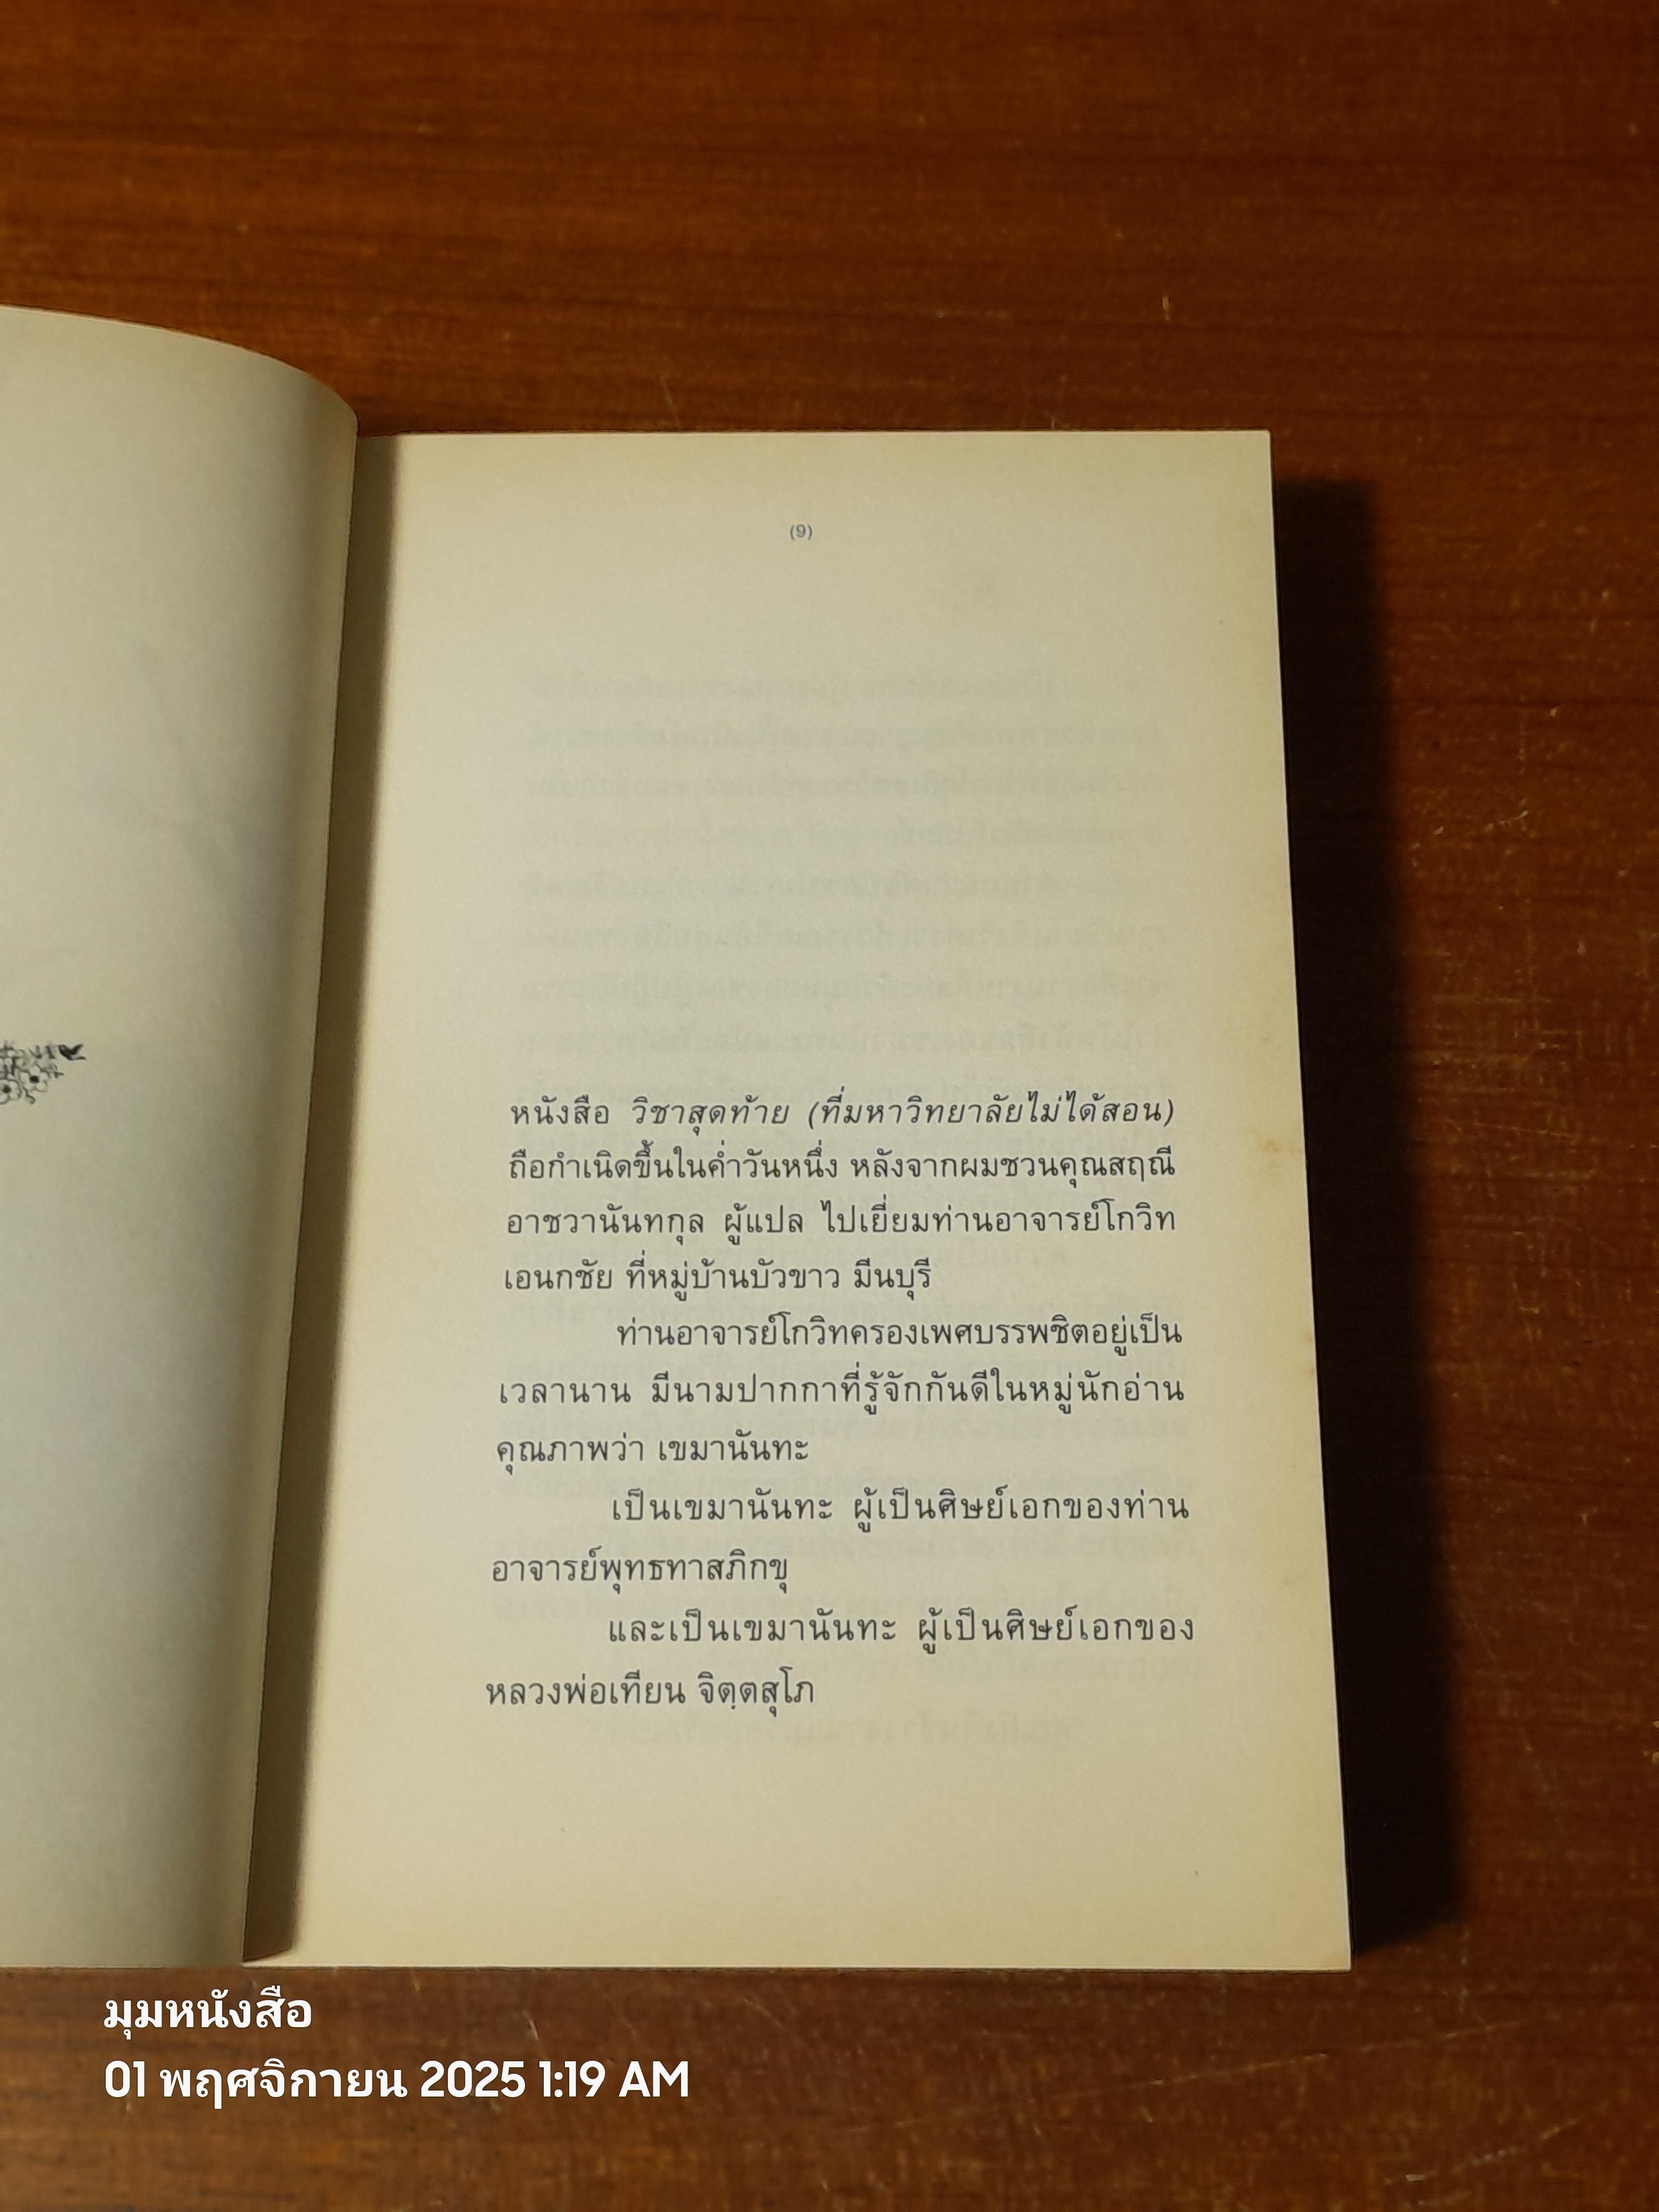 (9)
หนังสือ วิชาสุดท้าย (ที่มหาวิทยาลัยไม่ได้สอน)
ถือกำเนิดขึ้นในค่ำวันหนึ่ง หลังจากผมชวนคุณสฤณี
อาชวานันทกุล ผู้แปล ไปเยี่ยมท่านอาจารย์โกวิท
เอนกชัย ที่หมู่บ้านบัวขาว มีนบุรี
ท่านอาจารย์โกวิทครองเพศบรรพชิตอยู่เป็น
เวลานาน มีนามปากกาที่รู้จักกันดีในหมู่นักอ่าน
คุณภาพว่า เขมานันทะ
เป็นเขมานันทะ ผู้เป็นศิษย์เอกของท่าน
อาจารย์พุทธทาสภิกขุ
และเป็นเขมานันทะ ผู้เป็นศิษย์เอกของ
หลวงพ่อเทียน จิตฺตสุโภ
มุมหนังสือ
01 พฤศจิกายน 2025 1:19 AM